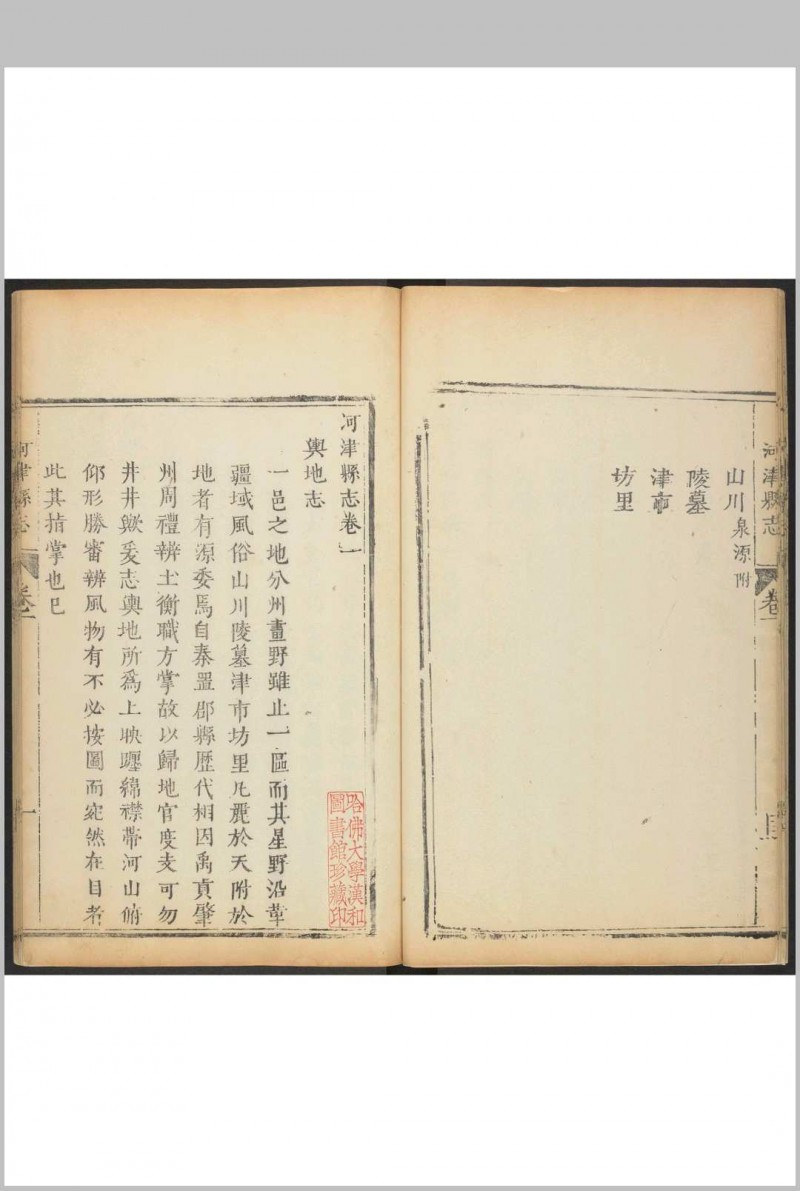 河津縣志
卷一
山川泉源附
陵墓
津市
坊里
河津縣志卷一
輿地志
一邑之地分州畫野雖止一區而其星野沿革
疆域風俗山川陵墓津市坊里凡麗於天附於
地者有源委焉自秦置郡縣歷代相因禹貢肇
州周禮辨土衡職方掌故以歸地官度支可勿
井井歟爰志輿地所爲上映躔綿襟帶河山俯
仰形勝審辨風物有不必按圖而宛然在目者
此其指掌也巳
哈佛大學漢和
圖書館珍藏印
河津縣志
卷一
一